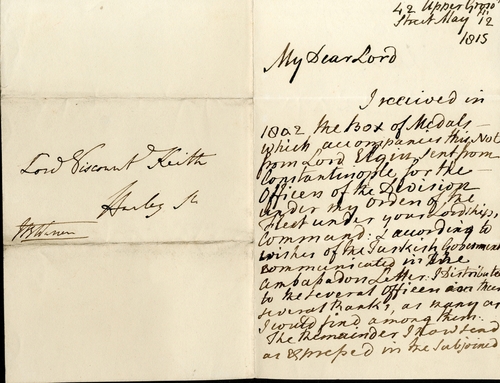 42 Upper Gros
Street May 12
1815
My Dear Lord
I received in
1802, the Box of Medals
which accompanies this Note
from Lord Elgin, sent from
Constantinople for the
Officers of the Division
under my orders of the
Fleet under your Lordship's
Command: & according to
wishes of the Turkish Governmen
communicated in the
ambassadors Letter. I Distribute
to the several officers
several thanks, as many as
I could find among them.
The Remainder I now send
as Expressed in the Subjoined
Lord Viscount Keith
Harley St